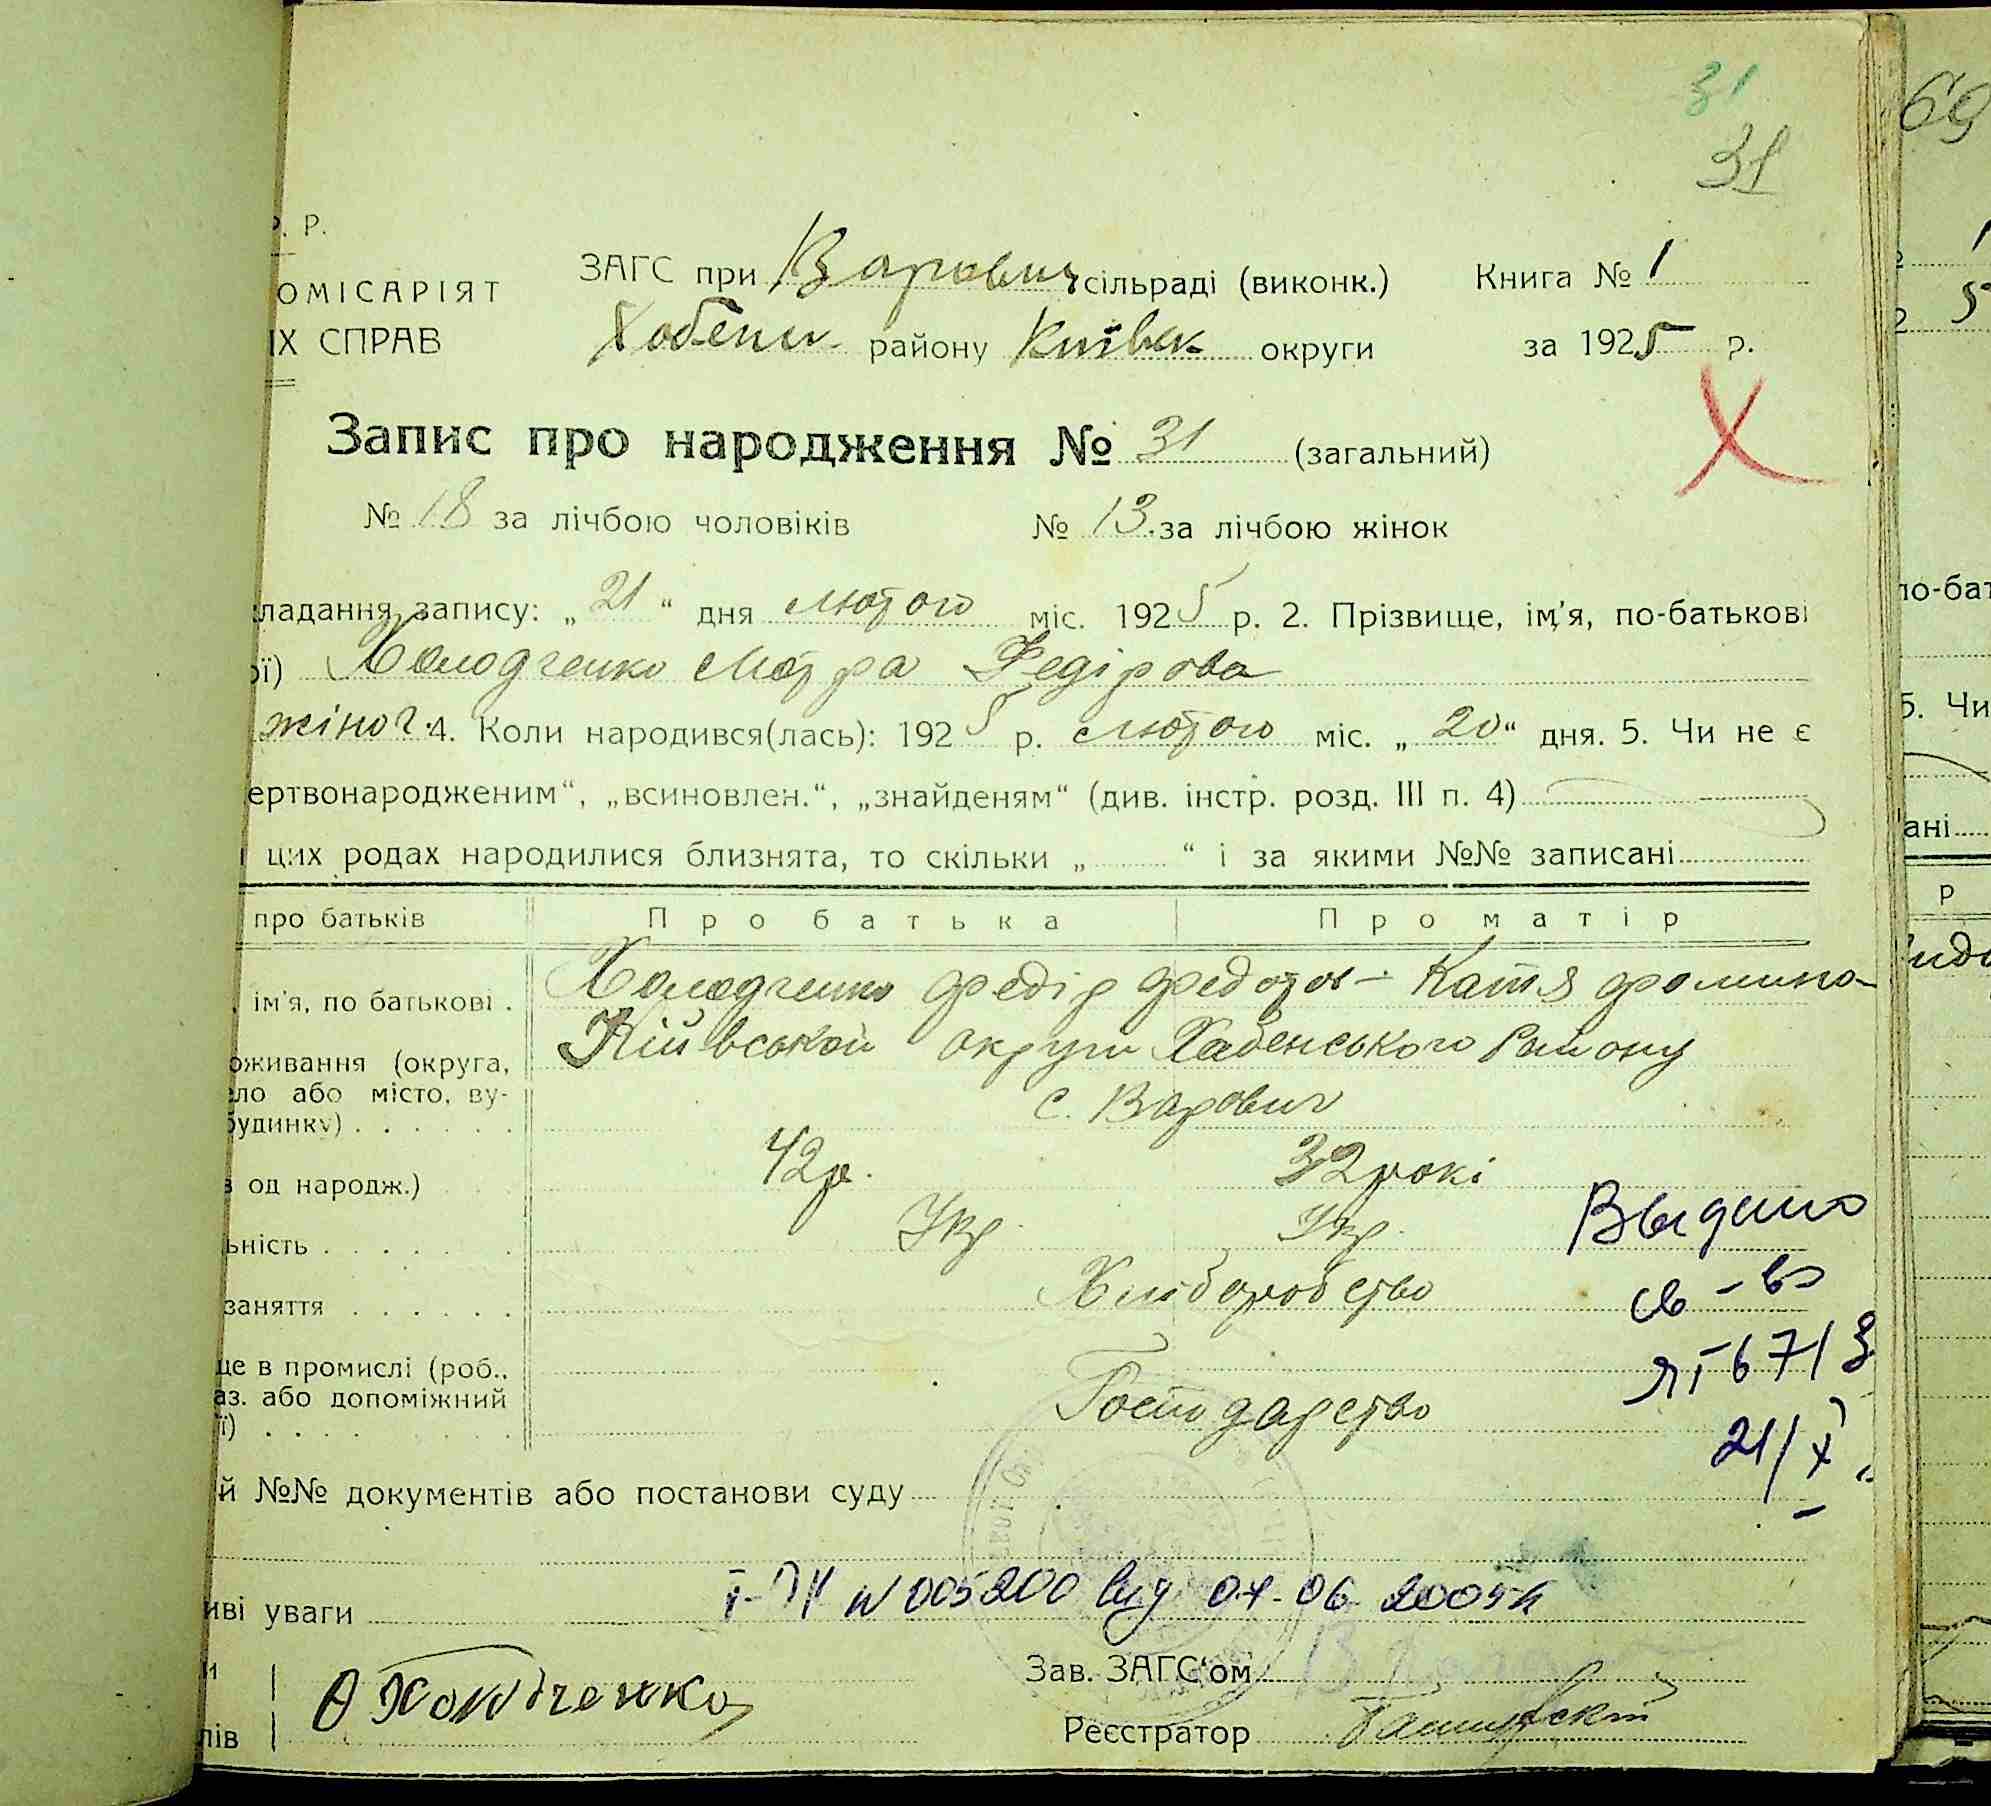 31
31
Р. Р.
ЗАГС при Варович сільраді (виконк.) Книга № 1
ОМІСАРІЯТ
ІХ СПРАВ Хобенськ району Київськ округи за 1925 р.
Запис про народження № 31 (загальний)
№ 18 за лічбою чоловіків № 13 за лічбою жінок
ладання запису: „ 21 “ дня лютого міс. 1925 р. 2. Прізвище, ім’я, по-батькові
ої) Холодченко Мотра Федірова
жіноч. 4. Коли народився(лась): 1925 р. лютого міс. „ 20 “ дня. 5. Чи не є
ертвонародженим“, „всиновлен.“, „знайденям“ (див. інстр. розд. III п. 4)
і цих родах народилися близнята, то скільки „ “ і за якими №№ записані
про батьків Про батька Про матір
ім’я, по батькові . Холодченко Федір Федотов – Катя
оживання (округа, Київської округи Хабенського Району
ло або місто, ву- с. Варович
будинку)
од народж.) 42 р. 32 рокі
ьність Укр. Укр. Выдано
заняття Хліборобство св-во
це в промислі (роб.,
аз. або допоміжний Господарство
ії) 21/X
й №№ документів або постанови суду
иві уваги І- № 005200 від 04-06-2009
и Зав. ЗАГС‘ом
Ѳ Холодченко
лів Реєстратор
69
1
5
по-бат
5. Чи
ані
р